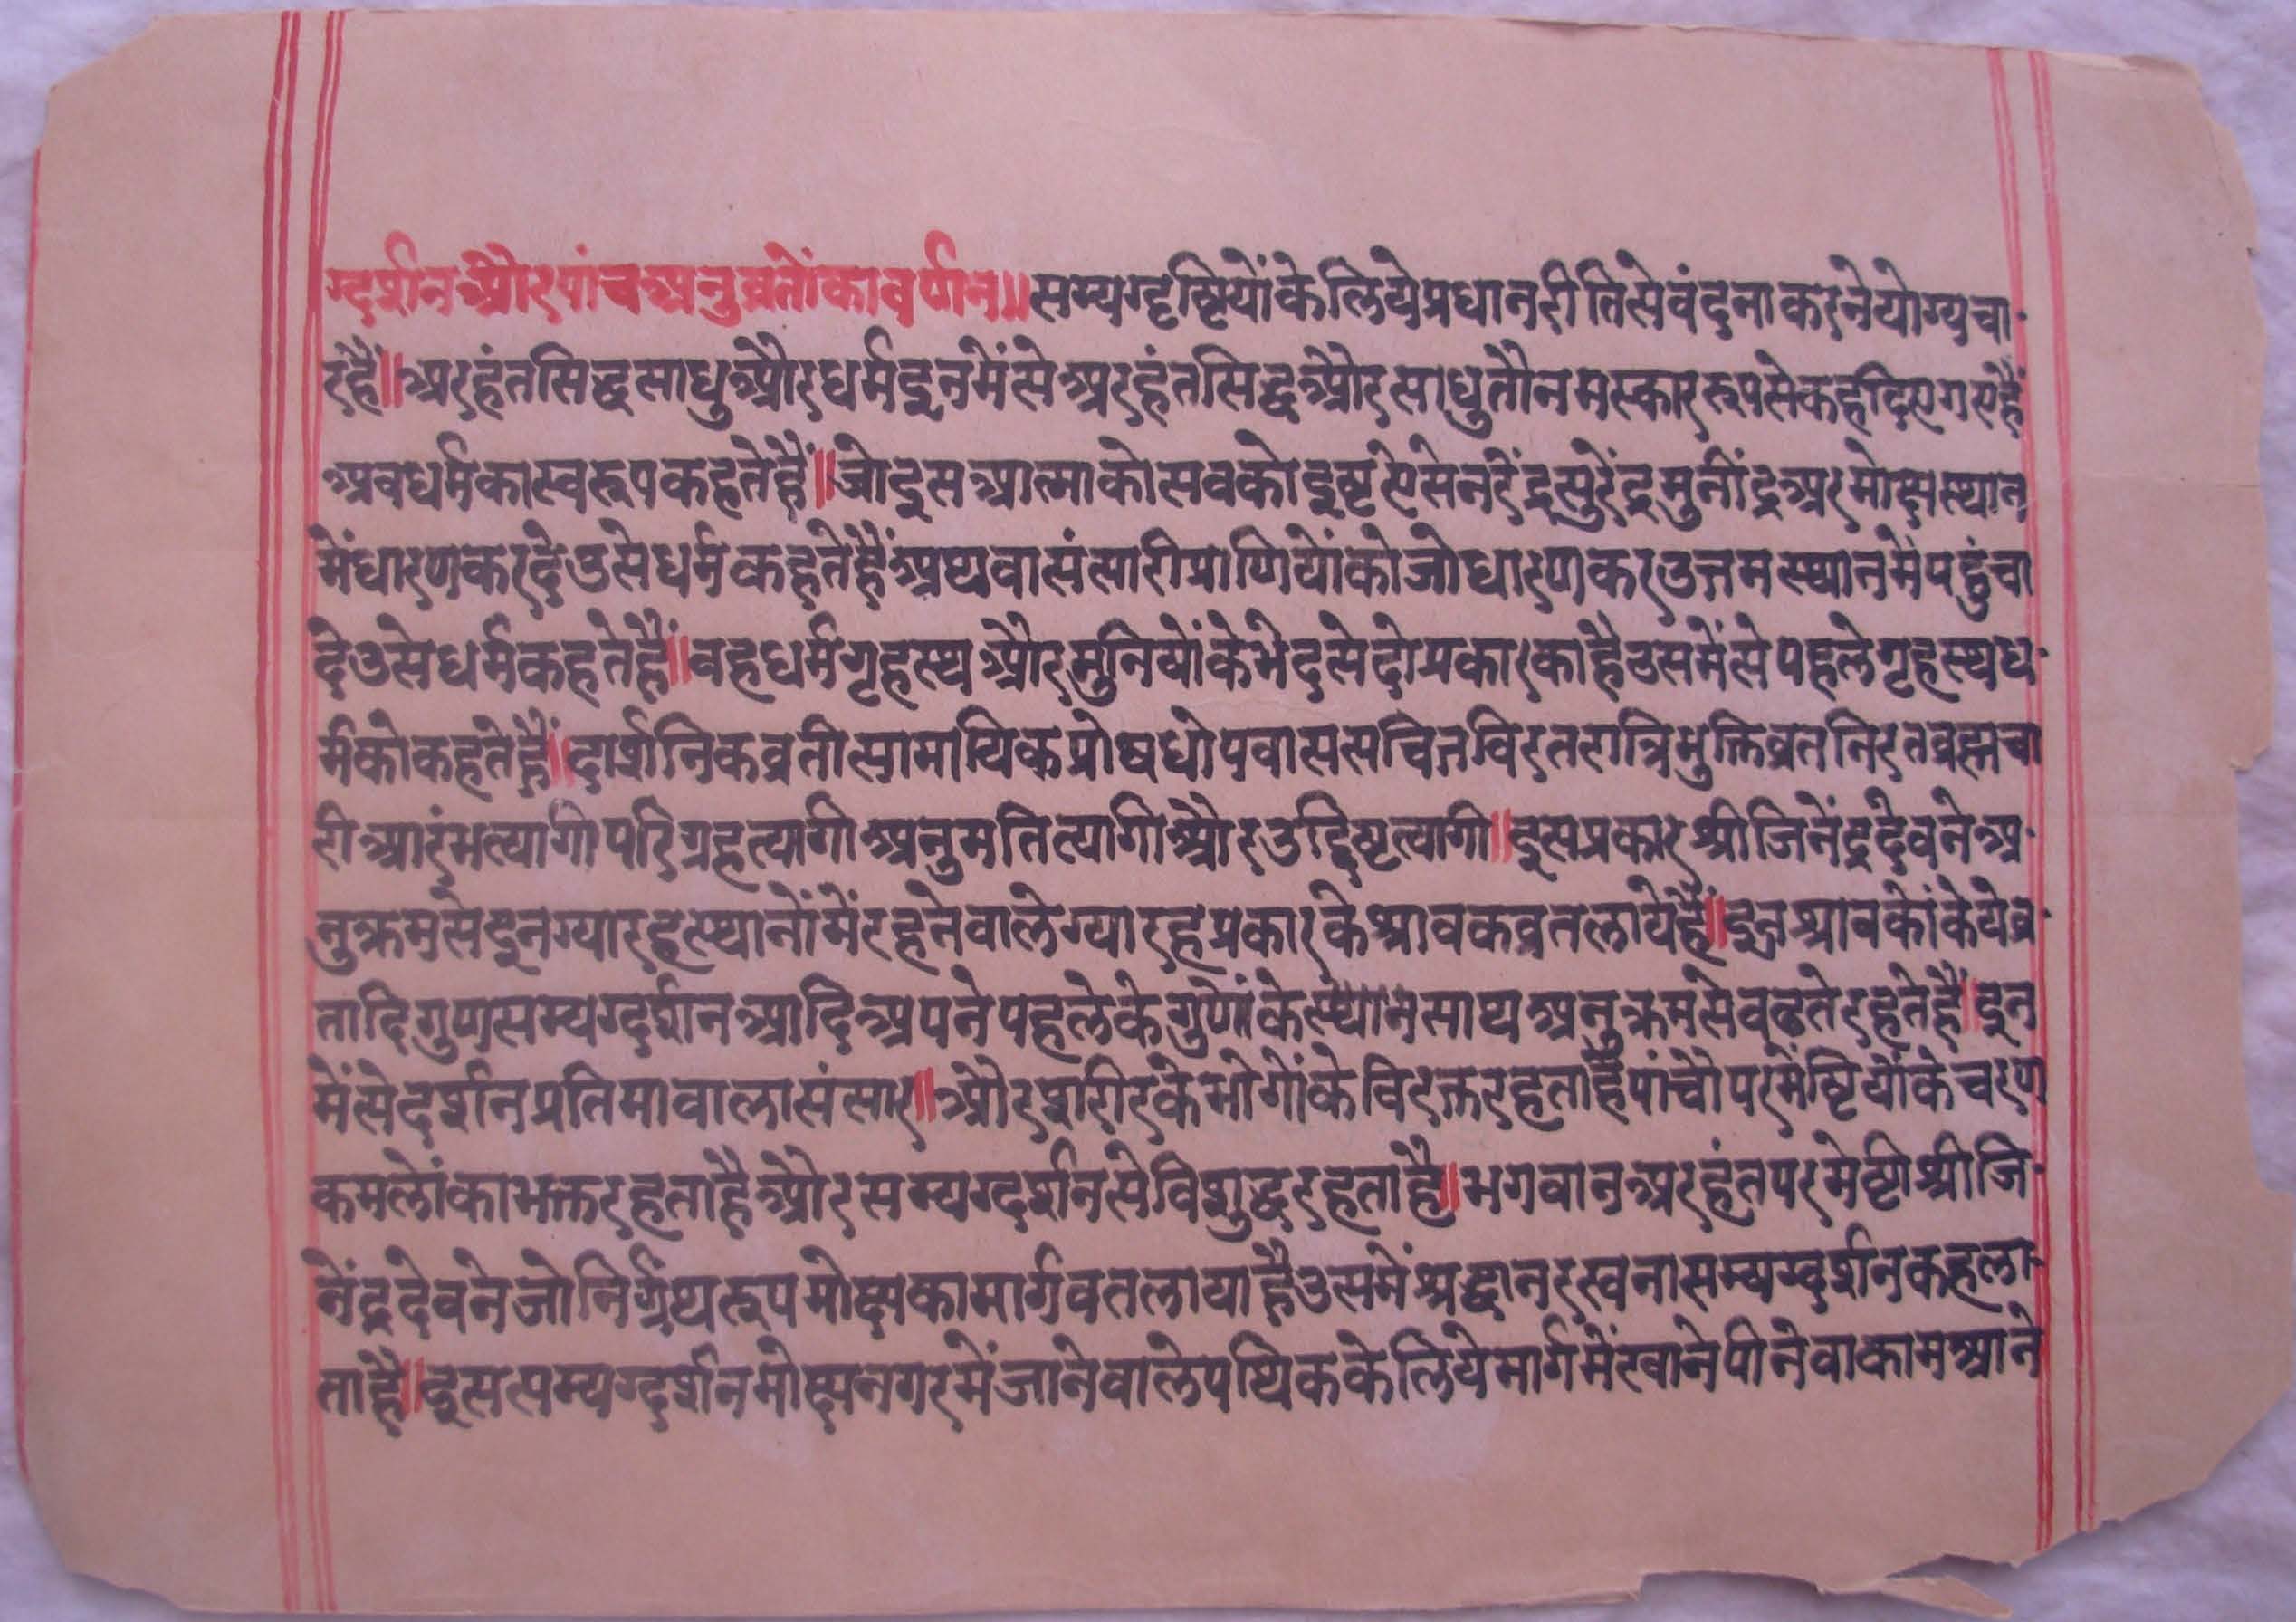 ग्दर्शनऔरपांचअनुव्रतोंकावर्णन॥सम्यग्दृष्टियोंकेलियेप्रधानरीतिसेवंदनाकरनेयोग्यचा-
रहैं॥अरहंतसिद्धसाधुऔरधर्मइनमेंसेअरहंतसिद्धऔरसाधुतौनमस्काररूपसेकहदिएगएहैं
अबधर्मकास्वरूपकहतेहैं॥जोइसआत्माकोसबकोइष्टऐसेनरेंद्रसुरेंद्रमुनींद्रअरमोक्षस्थान
मेंधारणकरदेउसेधर्मकहतेहैंअथवासंसारीप्राणियोंकोजोधारणकरउत्तमस्थानमेंपहुंचा
देउसेधर्मकहतेहैं॥वहधर्मगृहस्थऔरमुनियोंकेभेदसेदोप्रकारकाहैउसमेंसेपहलेगृहस्थध-
र्मकोकहतेहैं॥दार्शनिकव्रतीसामायिकप्रोषधोपवाससचित्तविरतरात्रिभुक्तिव्रतनिरतब्रह्मचा
रीआरंभत्यागीपरिग्रहत्यागीअनुमतित्यागीऔरउद्दिष्टत्यागी॥इसप्रकारश्रीजिनेंद्रदेवनेअ-
नुक्रमसेइनग्यारहस्थानोंमेंरहनेवालेग्यारहप्रकारकेश्रावकव्रतलायेहैं॥इनश्रावकोंकेयेव्र-
तादिगुणसम्यग्दर्शनआदिअपनेपहलेकेगुणोंकेस्थानसाथअनुक्रमसेबढतेरहतेहैं॥इन
मेंसेदर्शनप्रतिमावालासंसार॥औरशरीरकेभोगोंकेविरक्तरहताहैपांचौपरमेंष्टियोंकेचरण
कमलोंकाभक्तरहताहैऔरसम्यग्दर्शनसेविशुद्धरहताहै॥भगवानअरहंतपरमेष्टीश्रीजि-
नेंद्रदेवनेजोनिर्ग्रंथरूपमोक्षकामार्गवतलायाहैउसमेंश्रद्धानरखनासम्यग्दर्शनकहला-
ताहै॥इससम्यग्दर्शनमोक्षनगरमेंजानेवालेपथिककेलियेमार्गमेंखानेपीनेवाकामआने